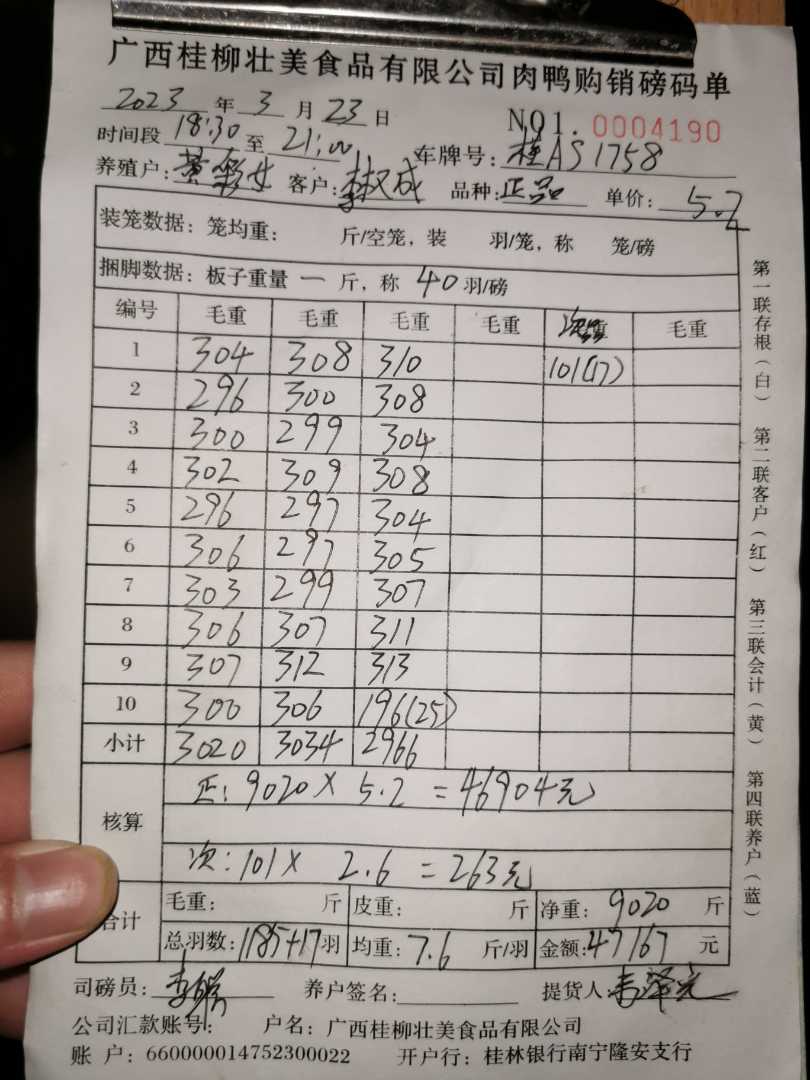 广西桂柳壮美食品有限公司肉鸭购销磅码单
2023 年 3 月 23 日 NO1. 0004190
时间段 18:30 至 21:00 车牌号: 桂AS1758
养殖户: 黄彩女 客户: 成 品种: 正品 单价: 5.2
装笼数据: 笼均重: 斤/空笼, 装 羽/笼, 称 笼/磅
捆脚数据: 板子重量 一 斤, 称 40 羽/磅
编号 毛重 毛重 毛重 毛重 毛重
1 304 308 310 101(17)
2 296 300 308
3 300 299 304
4 302 309 308
5 296 297 304
6 306 297 305
7 303 299 307
8 306 307 311
9 307 312 313
10 300 306 196(25)
小计 3020 3034 2966
核算 正: 9020 × 5.2 = 46904元
次: 101 × 2.6 = 263元
合计 毛重: 斤 皮重: 斤 净重: 9020 斤
总羽数: 1185+17 羽 均重: 7.6 斤/羽 金额: 47167 元
司磅员: 李 养户签名: 提货人:
公司汇款账号: 户名: 广西桂柳壮美食品有限公司
账 户: 660000014752300022 开户行: 桂林银行南宁隆安支行
第一联存根(白) 第二联客户(红) 第三联会计(黄) 第四联养户(蓝)